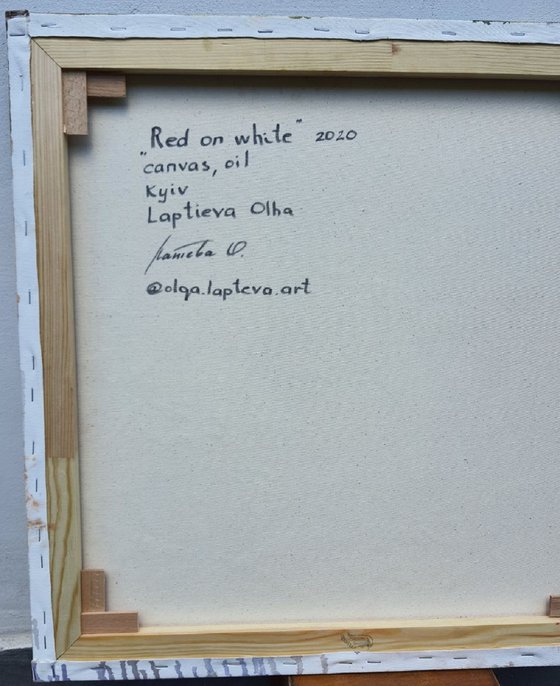 "Red on white" 2020
canvas, oil
Kyiv
Laptieva Olha
Лаптєва О.
@olga.lapteva.art